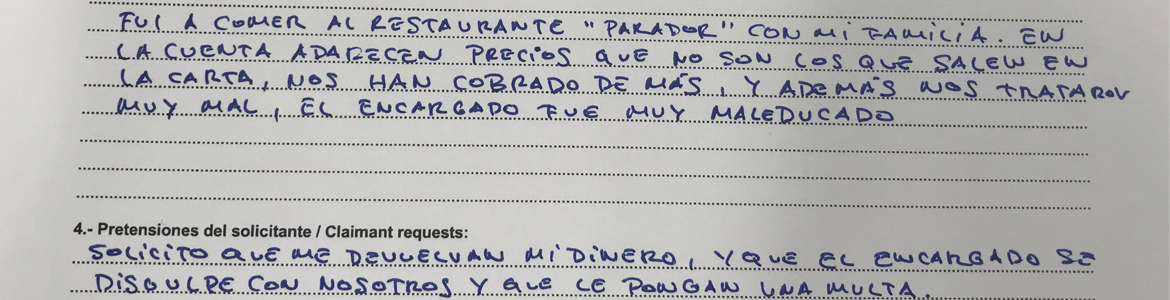 FUI A COMER AL RESTAURANTE "PARADOR" CON MI FAMILIA. EN
LA CUENTA APARECEN PRECIOS QUE NO SON LOS QUE SALEN EN
LA CARTA, NOS HAN COBRADO DE MÁS, Y ADEMÁS NOS TRATARON
MUY MAL, EL ENCARGADO FUE MUY MALEDUCADO
4.- Pretensiones del solicitante / Claimant requests:
SOLICITO QUE ME DEVUELVAN MI DINERO, Y QUE EL ENCARGADO SE
DISCULPE CON NOSOTROS Y QUE LE PONGAN UNA MULTA.